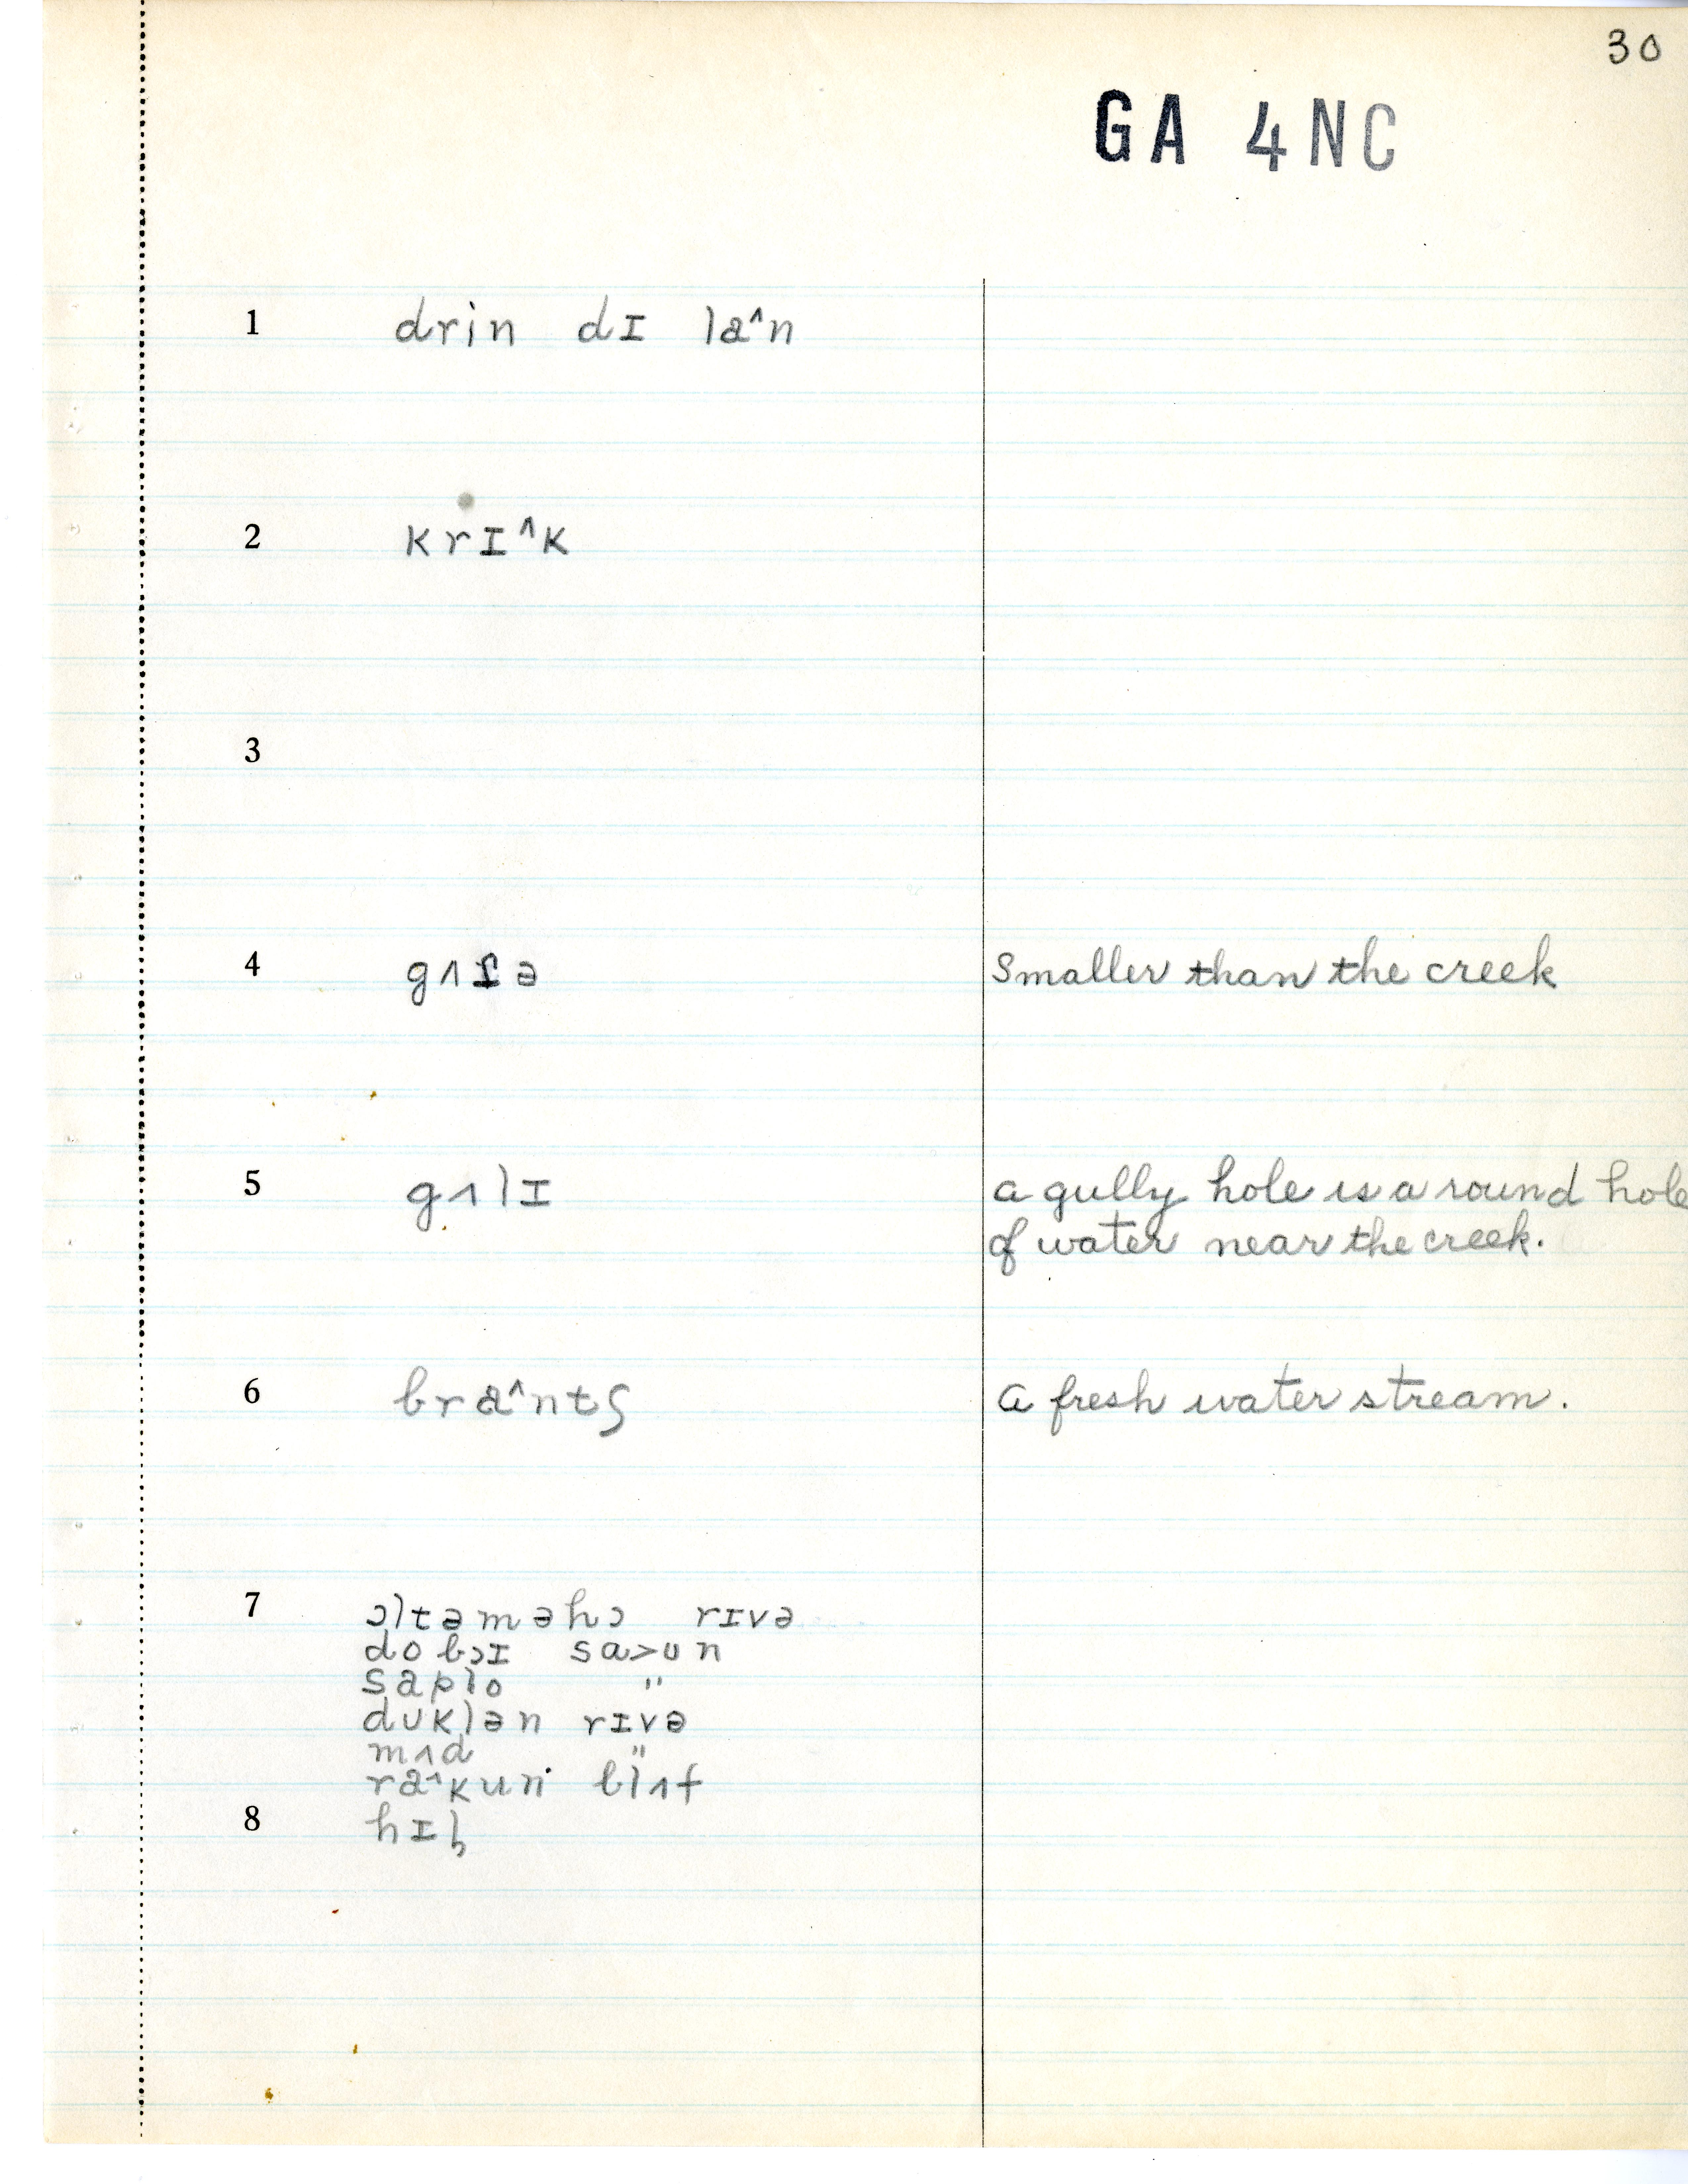 30
GA 4NC
1 drin dɪ la^n
2 krɪ^k
3
4 gʌtə Smaller than the creek
5 gʌlɪ a gully hole is a round hole
of water near the creek.
6 bra^ntʃ a fresh water stream.
7 ɔltəməhɔ rɪvə
dobɔɪ sa>un
saplo "
dʊklən rɪvə
mʌd "
ra^kun blʌf
8 hɪl̥